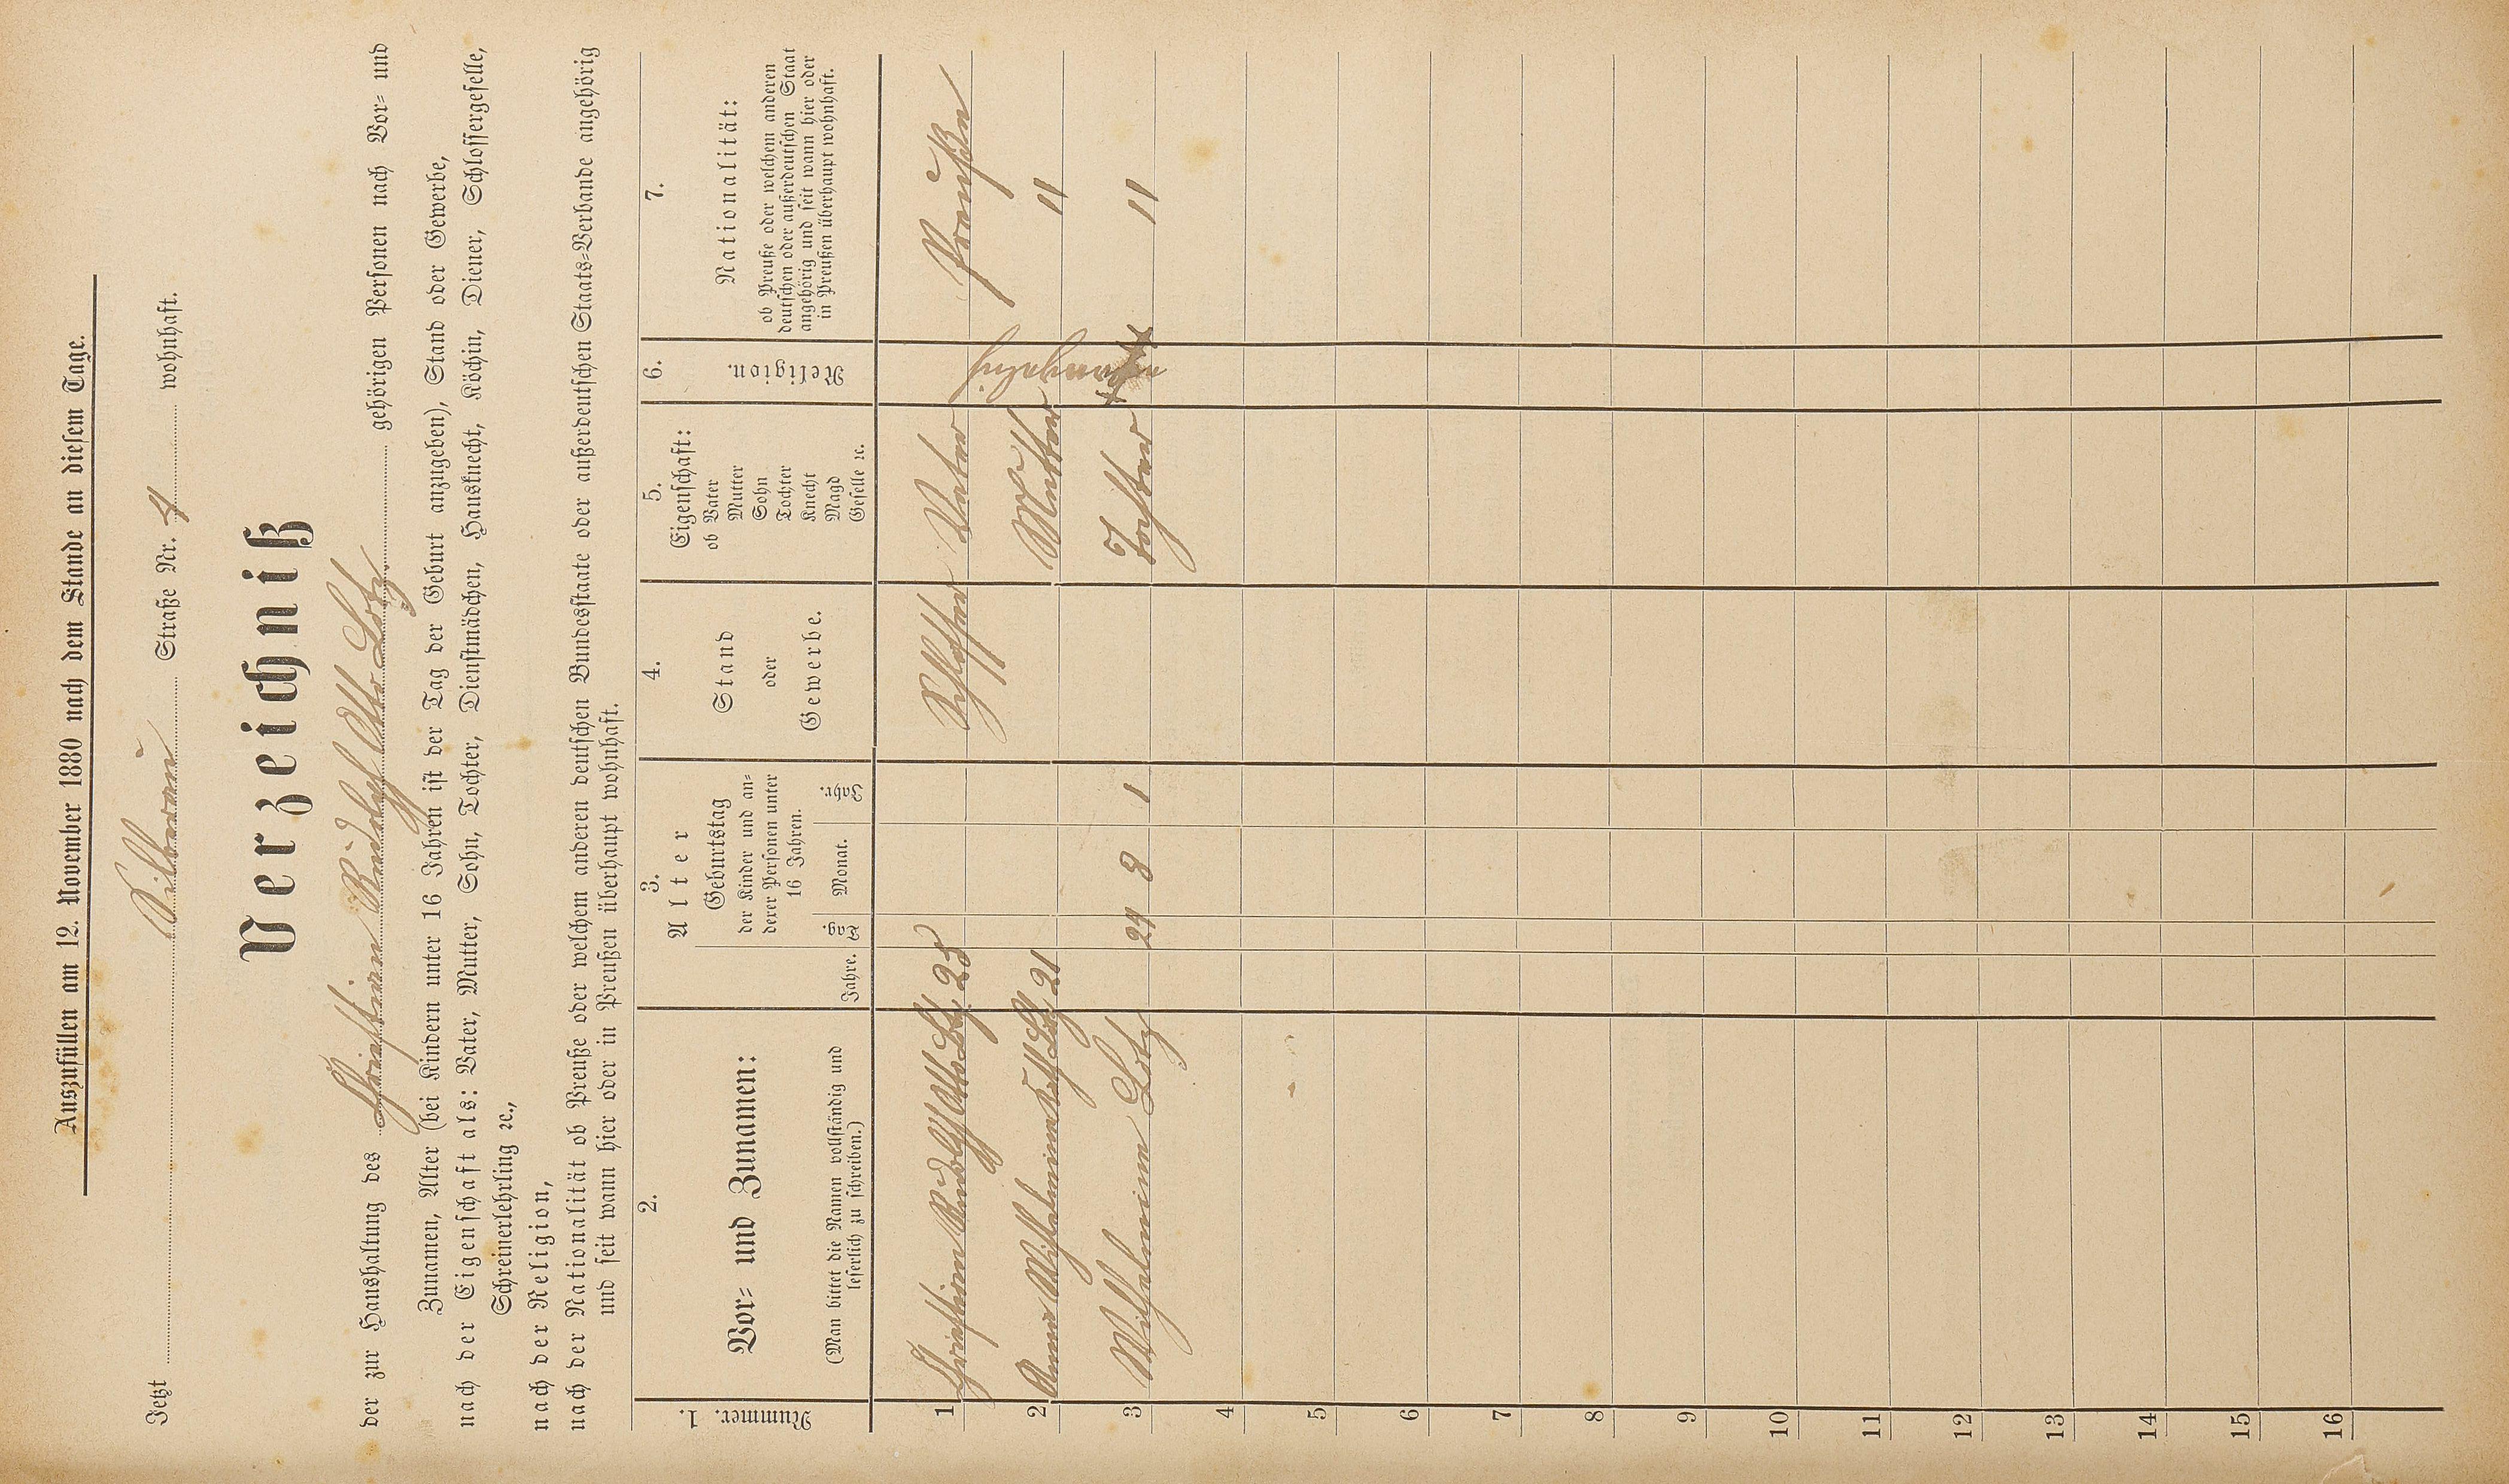 Auszufüllen am 12. November 1880 nach dem Stande an diesem Tage.
Jetzt Silberau Straße Nr. 4 wohnhaft.
Verzeichniß
der zur Haushaltung des Christian Rudolph Otto Lotz gehörigen Personen nach Vor- und
Zunamen, Alter (bei Kindern unter 16 Jahren ist der Tag der Geburt anzugeben), Stand oder Gewerbe,
nach der Eigenschaft als: Vater, Mutter, Sohn, Tochter, Dienstmädchen, Hausknecht, Köchin, Diener, Schlossergeselle,
Schreinerlehrling ꝛc.,
nach der Religion,
nach der Nationalität ob Preuße oder welchem anderen deutschen Bundesstaate oder außerdeutschen Staats-Verbande angehörig
und seit wann hier oder in Preußen überhaupt wohnhaft.
1. Nummer.
2.
Vor- und Zunamen:
(Man bittet die Namen vollständig und
leserlich zu schreiben.)
3.
Alter
Jahre.
Geburtstag
der Kinder und an-
derer Personen unter
16 Jahren.
Tag. Monat. Jahr.
4.
Stand
oder
Gewerbe.
5.
Eigenschaft:
ob Vater
Mutter
Sohn
Tochter
Knecht
Magd
Geselle ꝛc.
6.
Religion.
7.
Nationalität:
ob Preuße oder welchem anderen
deutschen oder außerdeutschen Staat
angehörig und seit wann hier oder
in Preußen überhaupt wohnhaft.
1 Christian Rudolph Otto Lotz 25 Schlosser Vater Preuße
2 Anna Wilhelmine Lotz 21 Mutter evangelisch "
3 Wilhelmine Lotz 24 8 1 Tochter "
4
5
6
7
8
9
10
11
12
13
14
15
16